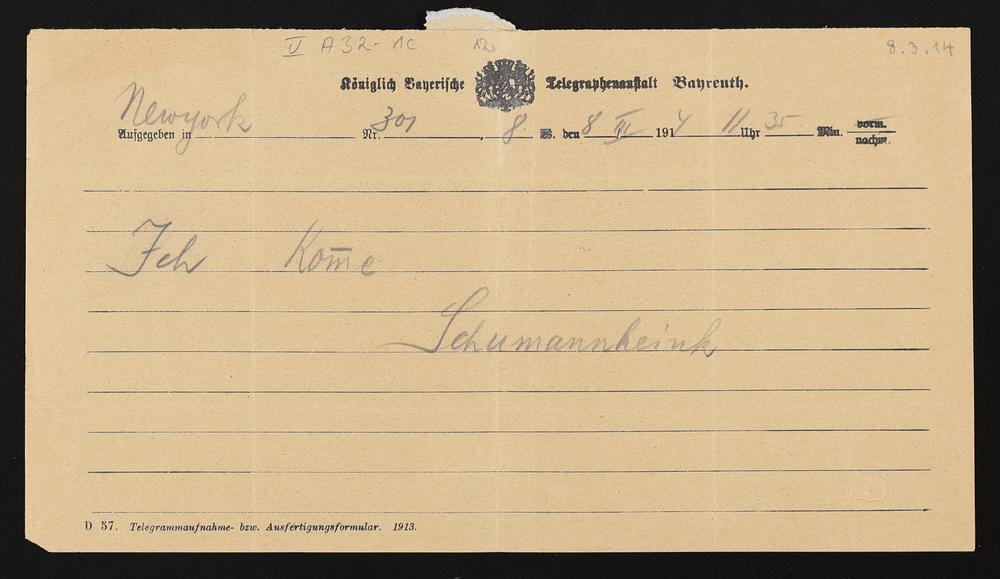 V A 32-1c 12 8.3.14
Königlich Bayerische Telegraphenanstalt Bayreuth.
Aufgegeben in Newyork Nr. 301, 8 W. den 8 III 1914 11 Uhr 35 Min. vorm. nachm.
Ich kom̅e
Schumannheink
D 57. Telegrammaufnahme- bzw. Ausfertigungsformular. 1913.